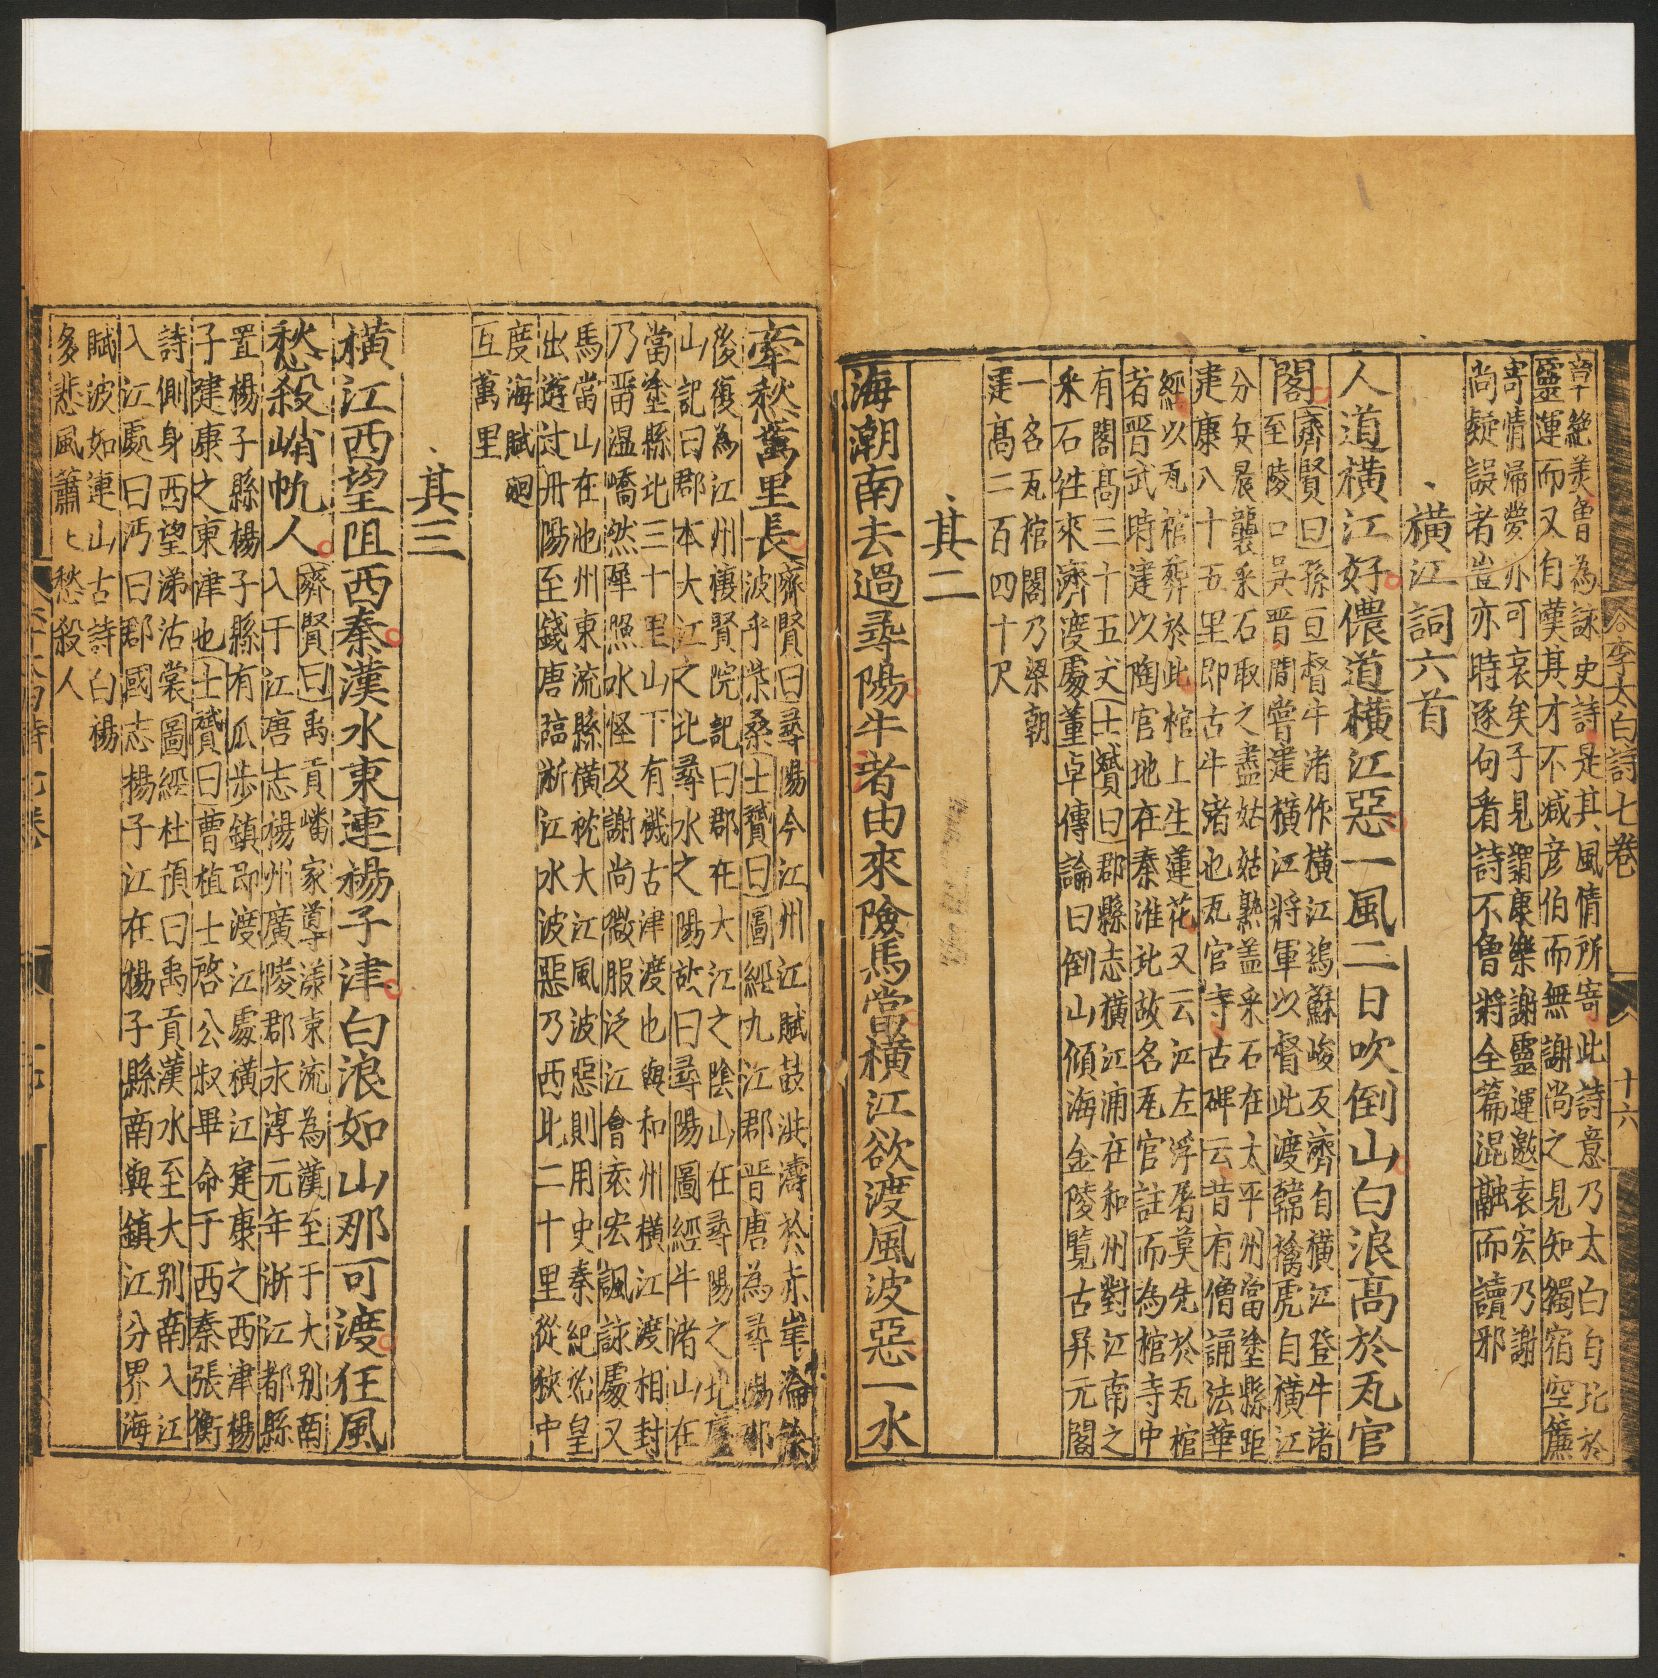 李太白詩七卷
十六
章絶美魯為詠史詩是其風情所寄此詩意乃太白自比於
靈運而又自嘆其才不减彦伯而無謝尚之見知獨宿空簾
寄情㱕夢亦可哀矣子見觀康樂謝靈運邀袁宏乃謝
尚疑誤者豈亦時逐句看詩不魯將全篇混融而讀邪
橫江詞六首
人道橫江好儂道橫江惡一風二日吹倒山白浪髙於瓦官
閣
齊賢曰孫亘督牛渚作橫江鴻蘇峻反濟自橫江登牛渚
至陵口吳晋間嘗建橫江將軍以督此渡韓擒虎自橫江
分兵晨襲采石取之盡姑姑熟盖采石在太平州當塗縣距
建康八十五里即古牛渚也瓦官寺古碑云昔有僧誦法華
經以瓦棺葬於此棺上生蓮花又云江左浮屠莫先於瓦棺
者晋武時建以陶官地在秦淮北故名瓦官註而為棺寺中
有閣髙三十五丈士贇曰郡縣志橫江浦在和州對江南之
采石徃來濟渡處董卓傳論曰倒山傾海金陵覽古昇元閣
一名瓦棺閣乃梁朝
建髙二百四十尺
其二
海潮南去過尋陽牛渚由來險馬當橫江欲渡風波惡一水
牽愁萬里長
齊賢曰尋陽今江州江賦鼓洪濤於赤岸淪餘
波乎柴桑士贇曰圖經九江郡晋唐為尋陽郡
後復為江州樓賢院記曰郡在大江之隂山在尋陽之北廬
山記曰郡本大江之北尋水之陽故曰尋陽圖經牛渚山在
當塗縣北三十里山下有磯古津渡也與和州橫江渡相封
乃晋温嶠然犀照水怪及謝尚微服泛江會袁宏諷詠處又
馬當山在池州東流縣橫枕大江風波惡則用史秦紀始皇
出遊过丹陽至錢唐臨浙江水波惡乃西北二十里從狹中
度海賦廻
互萬里
其三
橫江西望阻西秦漢水東連楊子津白浪如山那可渡狂風
愁殺峭帆人
齊賢曰禹貢嶓冢導漾東流為漢至于大别南
入于江唐志楊州廣陵郡永淳元年淅江都縣
置楊子縣楊子縣有瓜步鎮即渡江處橫江建康之西津楊
子建康之東津也士贇曰曹植士啓公叔畢命于西秦張衡
詩側身西望涕沾裳圖經杜預曰禹貢漢水至大别南入江
入江處曰沔曰郡國志楊子江在楊子縣南與鎮江分界海
賦波如連山古詩白楊
多悲風蕭〻愁殺人